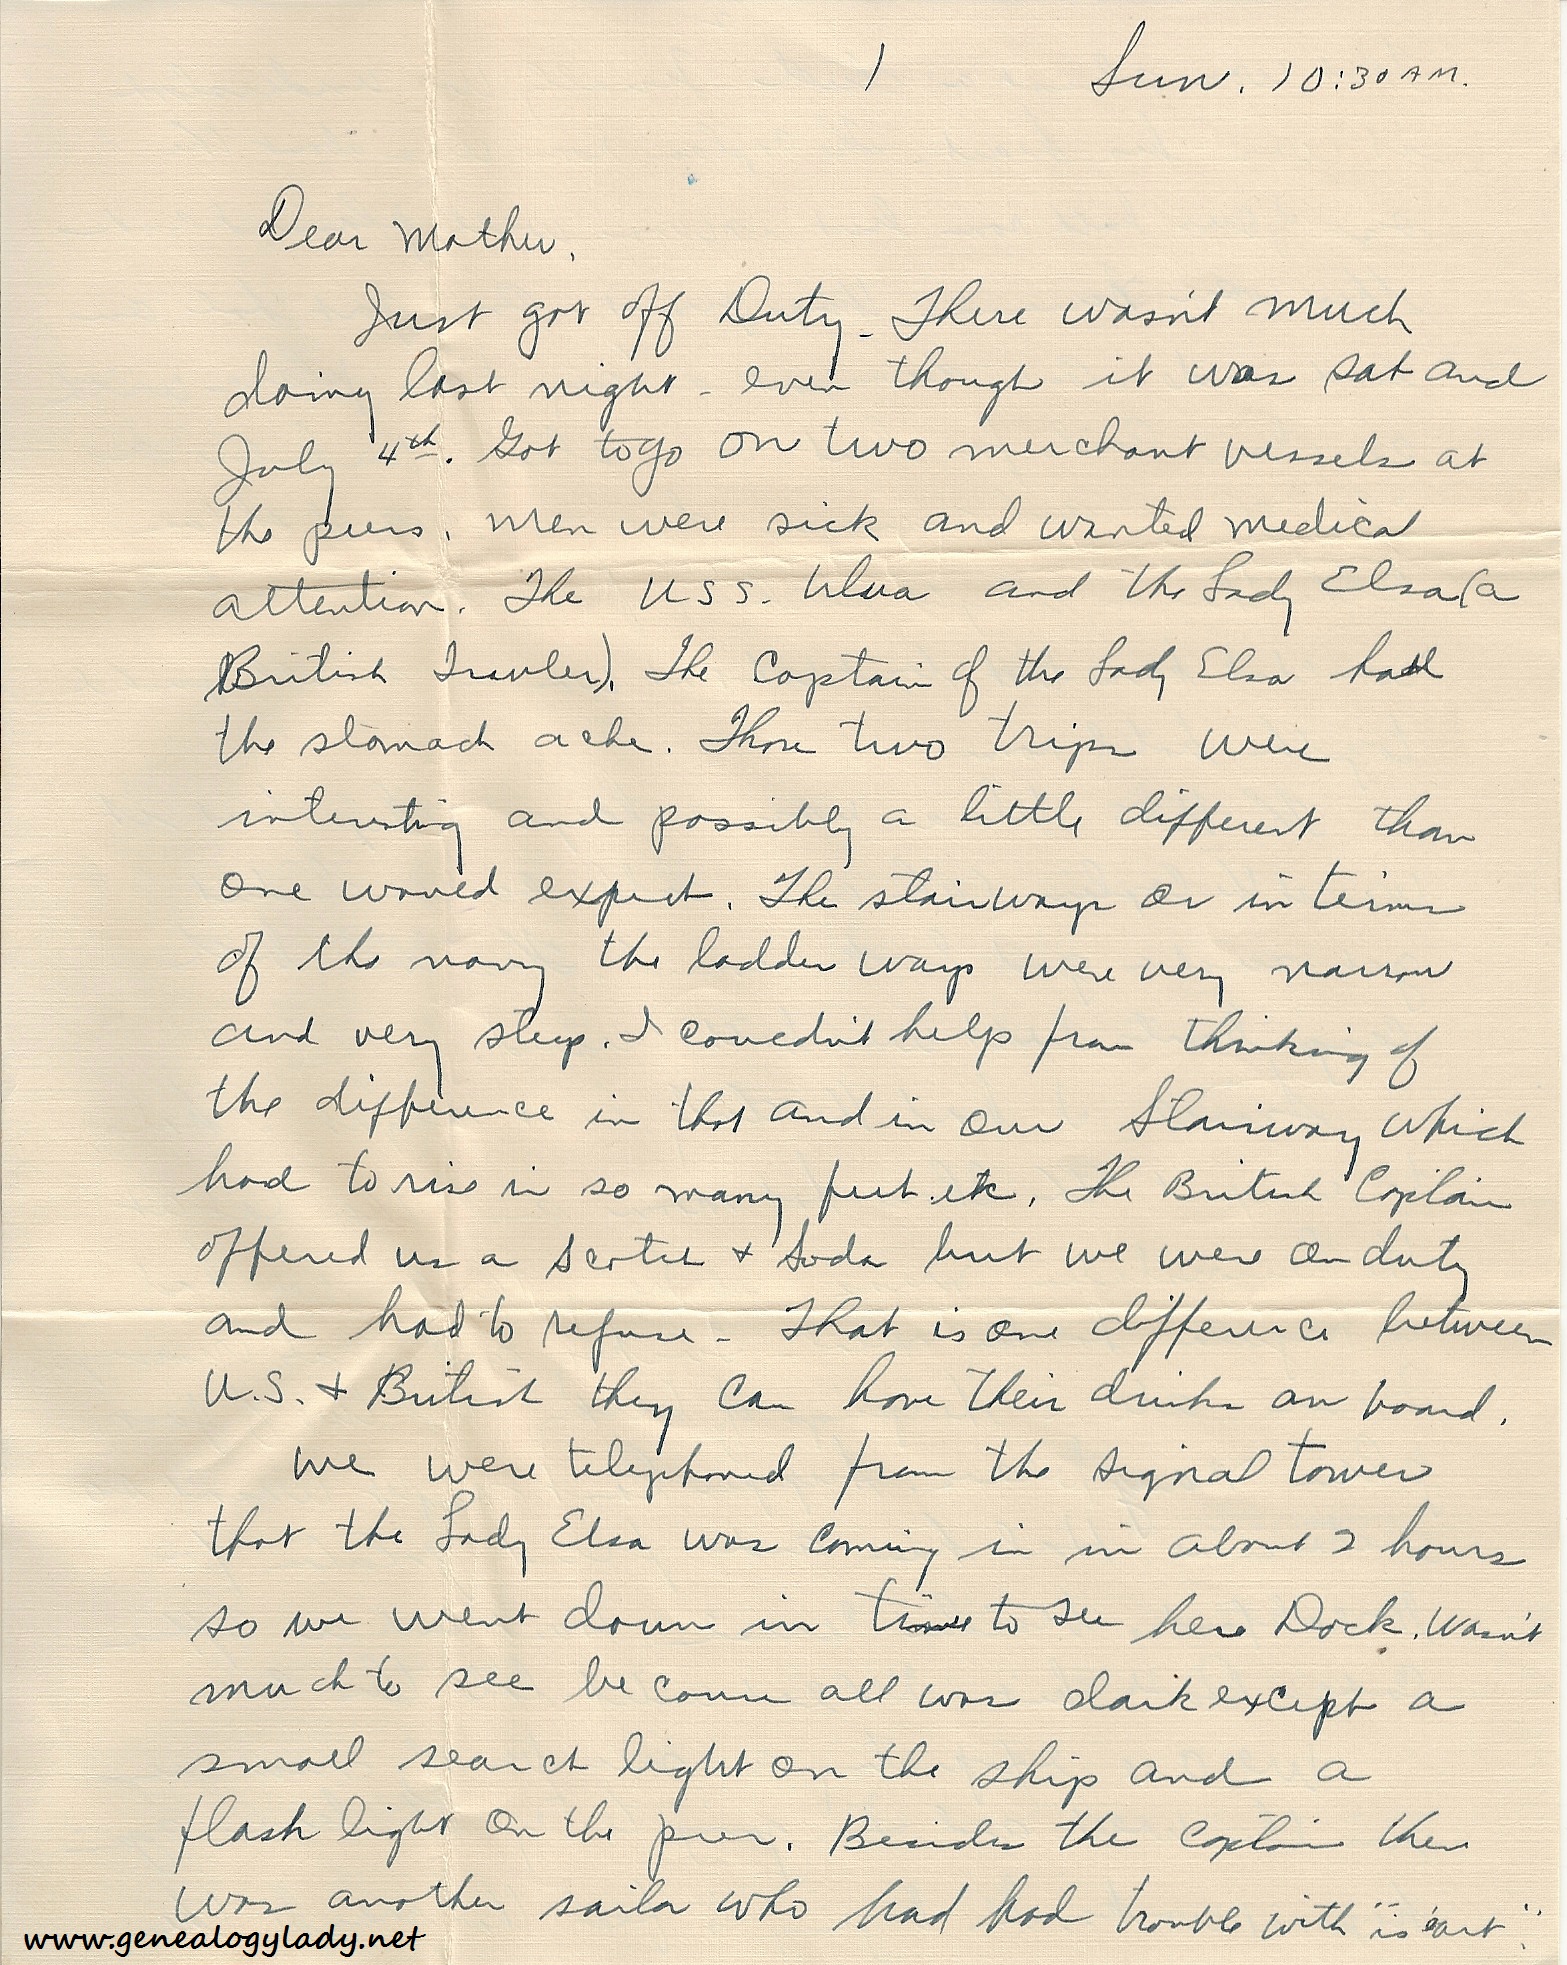 1 Sun. 10:30 AM.
Dear Mother,
Just got off Duty. There wasn't much
doing last night - even though it was Sat and
July 4th. Got to go on two merchant vessels at
the piers. Men were sick and wanted medical
attention. The U.S.S. Ulua and the Lady Elsa (a
British Trawler). The Captain of the Lady Elsa had
the stomach ache. Those two trips were
interesting and possibly a little different than
one would expect. The stairways or in terms
of the navy the ladder ways were very narrow
and very steep. I couldn't help from thinking of
the difference in that and in our Stairway which
had to rise in so many feet etc. The British Captain
offered us a Scotch + Soda but we were on duty
and had to refuse - That is one difference between
U.S. + British they can have their drinks on board.
We were telephoned from the signal tower
that the Lady Elsa was coming in in about 2 hours
so we went down in time to see here Dock. Wasn't
much to see because all was dark except a
small search light on the ship and a
flash light on the pier. Besides the captain there
was another sailor who had had trouble with "'is 'eart".
www.genealogylady.net